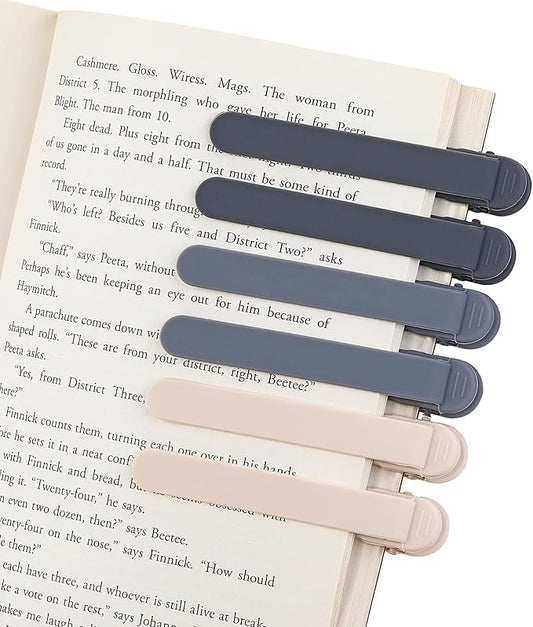 Cashmere. Gloss. Wiress. Mags. The woman from
District 5. The morphling who gave her life for Peeta.
Blight. The man from 10.
Eight dead. Plus eight from the
of us gone in a day and a half. That must be some kind of
record.
"They're really burning through
"Who's left? Besides us five and District Two?" asks
Finnick.
"Chaff," says Peeta, without
Perhaps he's been keeping an eye out for him because of
Haymitch.
A parachute comes down wi
shaped rolls. "These are from your district, right, Beetee?"
Peeta asks.
"Yes, from District Three,
here?"
Finnick counts them, turning each one over in his hands
ore he sets it in a neat conf
with Finnick and bread, but he seems obsessed with
ling it. "Twenty-four," he says.
n even two dozen, then?" says Beetee.
wenty-four on the nose," says Finnick. "How should
le them?"
each have three, and whoever is still alive at break-
ke a vote on the rest," says Johanna
makes me laugh